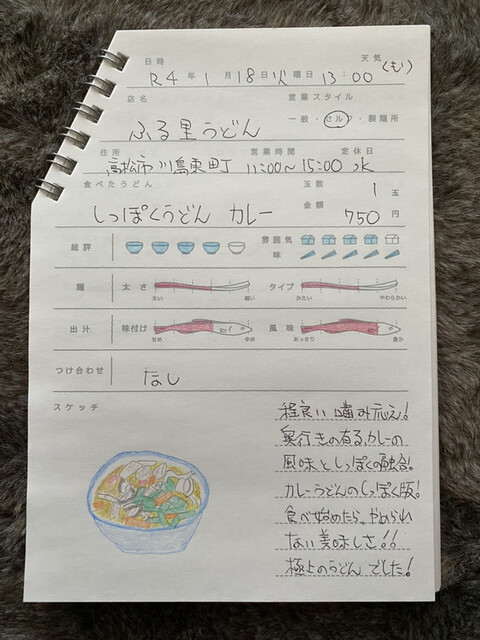 日時 天気
R4年1月18日火曜日 13:00 (くもり)
店名 営業スタイル
ふる里うどん 一般・セルフ・製麺所
住所 営業時間 定休日
高松市川島東町 11:00～15:00 水
食べたうどん 玉数 1 玉
しっぽくうどん カレー 金額 750 円
総評 雰囲気
味
麺 太さ タイプ
太い 細い かたい やわらかい
出汁 味付け 風味
甘め 辛め あっさり 豊か
つけ合わせ なし
スケッチ
程良い噛み応え!
奥行きの有るカレーの
風味としっぽくの融合!
カレーうどんのしっぽく版!
食べ始めたら、やめられ
ない美味しさ!!
極上のうどんでした!